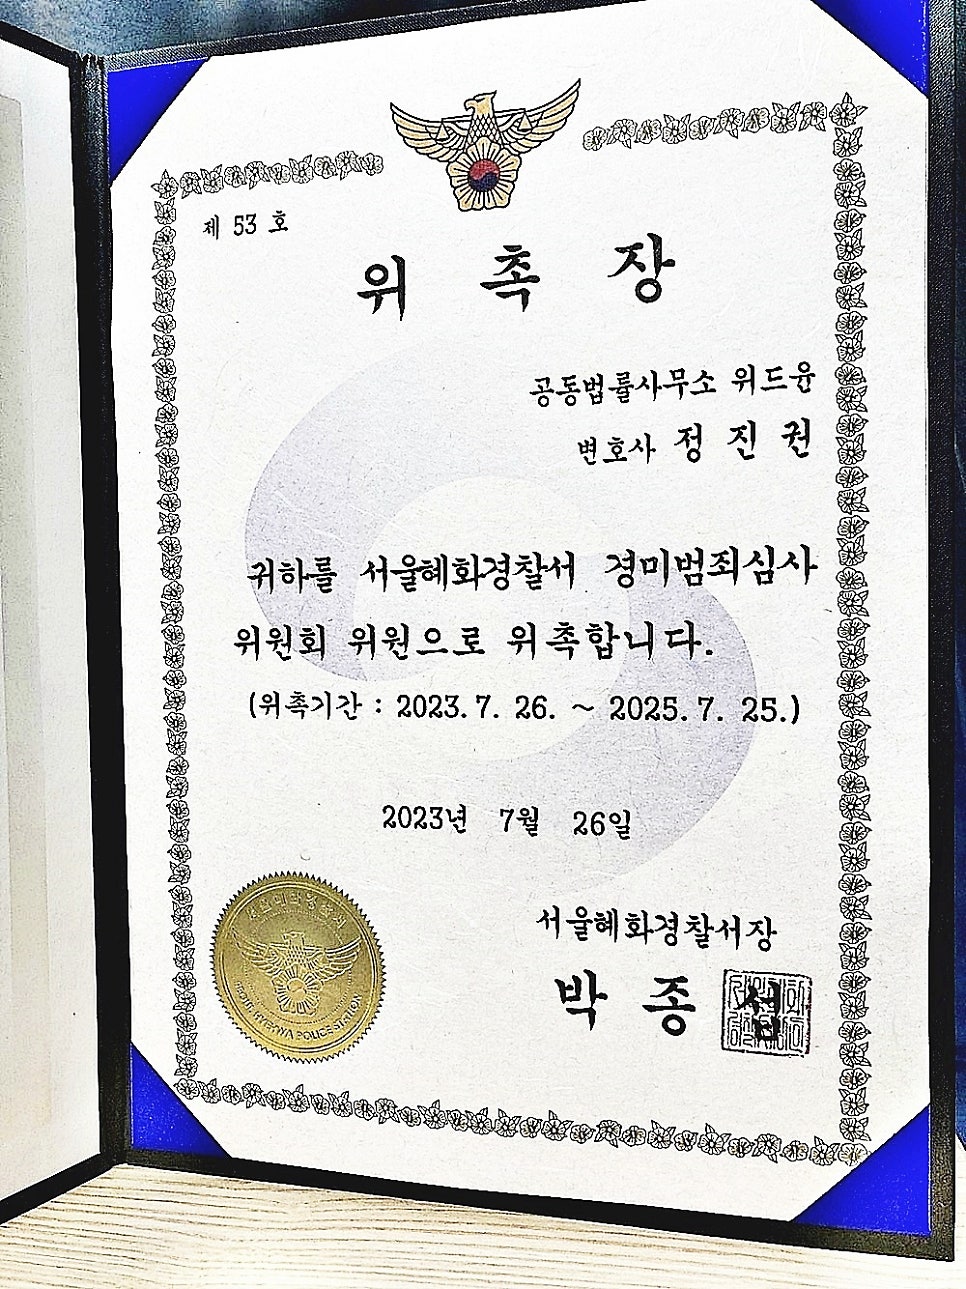 제 53 호
위 촉 장
공동법률사무소 위드윤
변호사 정 진 권
귀하를 서울혜화경찰서 경미범죄심사
위원회 위원으로 위촉합니다.
(위촉기간 : 2023. 7. 26. ~ 2025. 7. 25.)
2023년 7월 26일
서울혜화경찰서장
박 종 섭
POLICE STATION